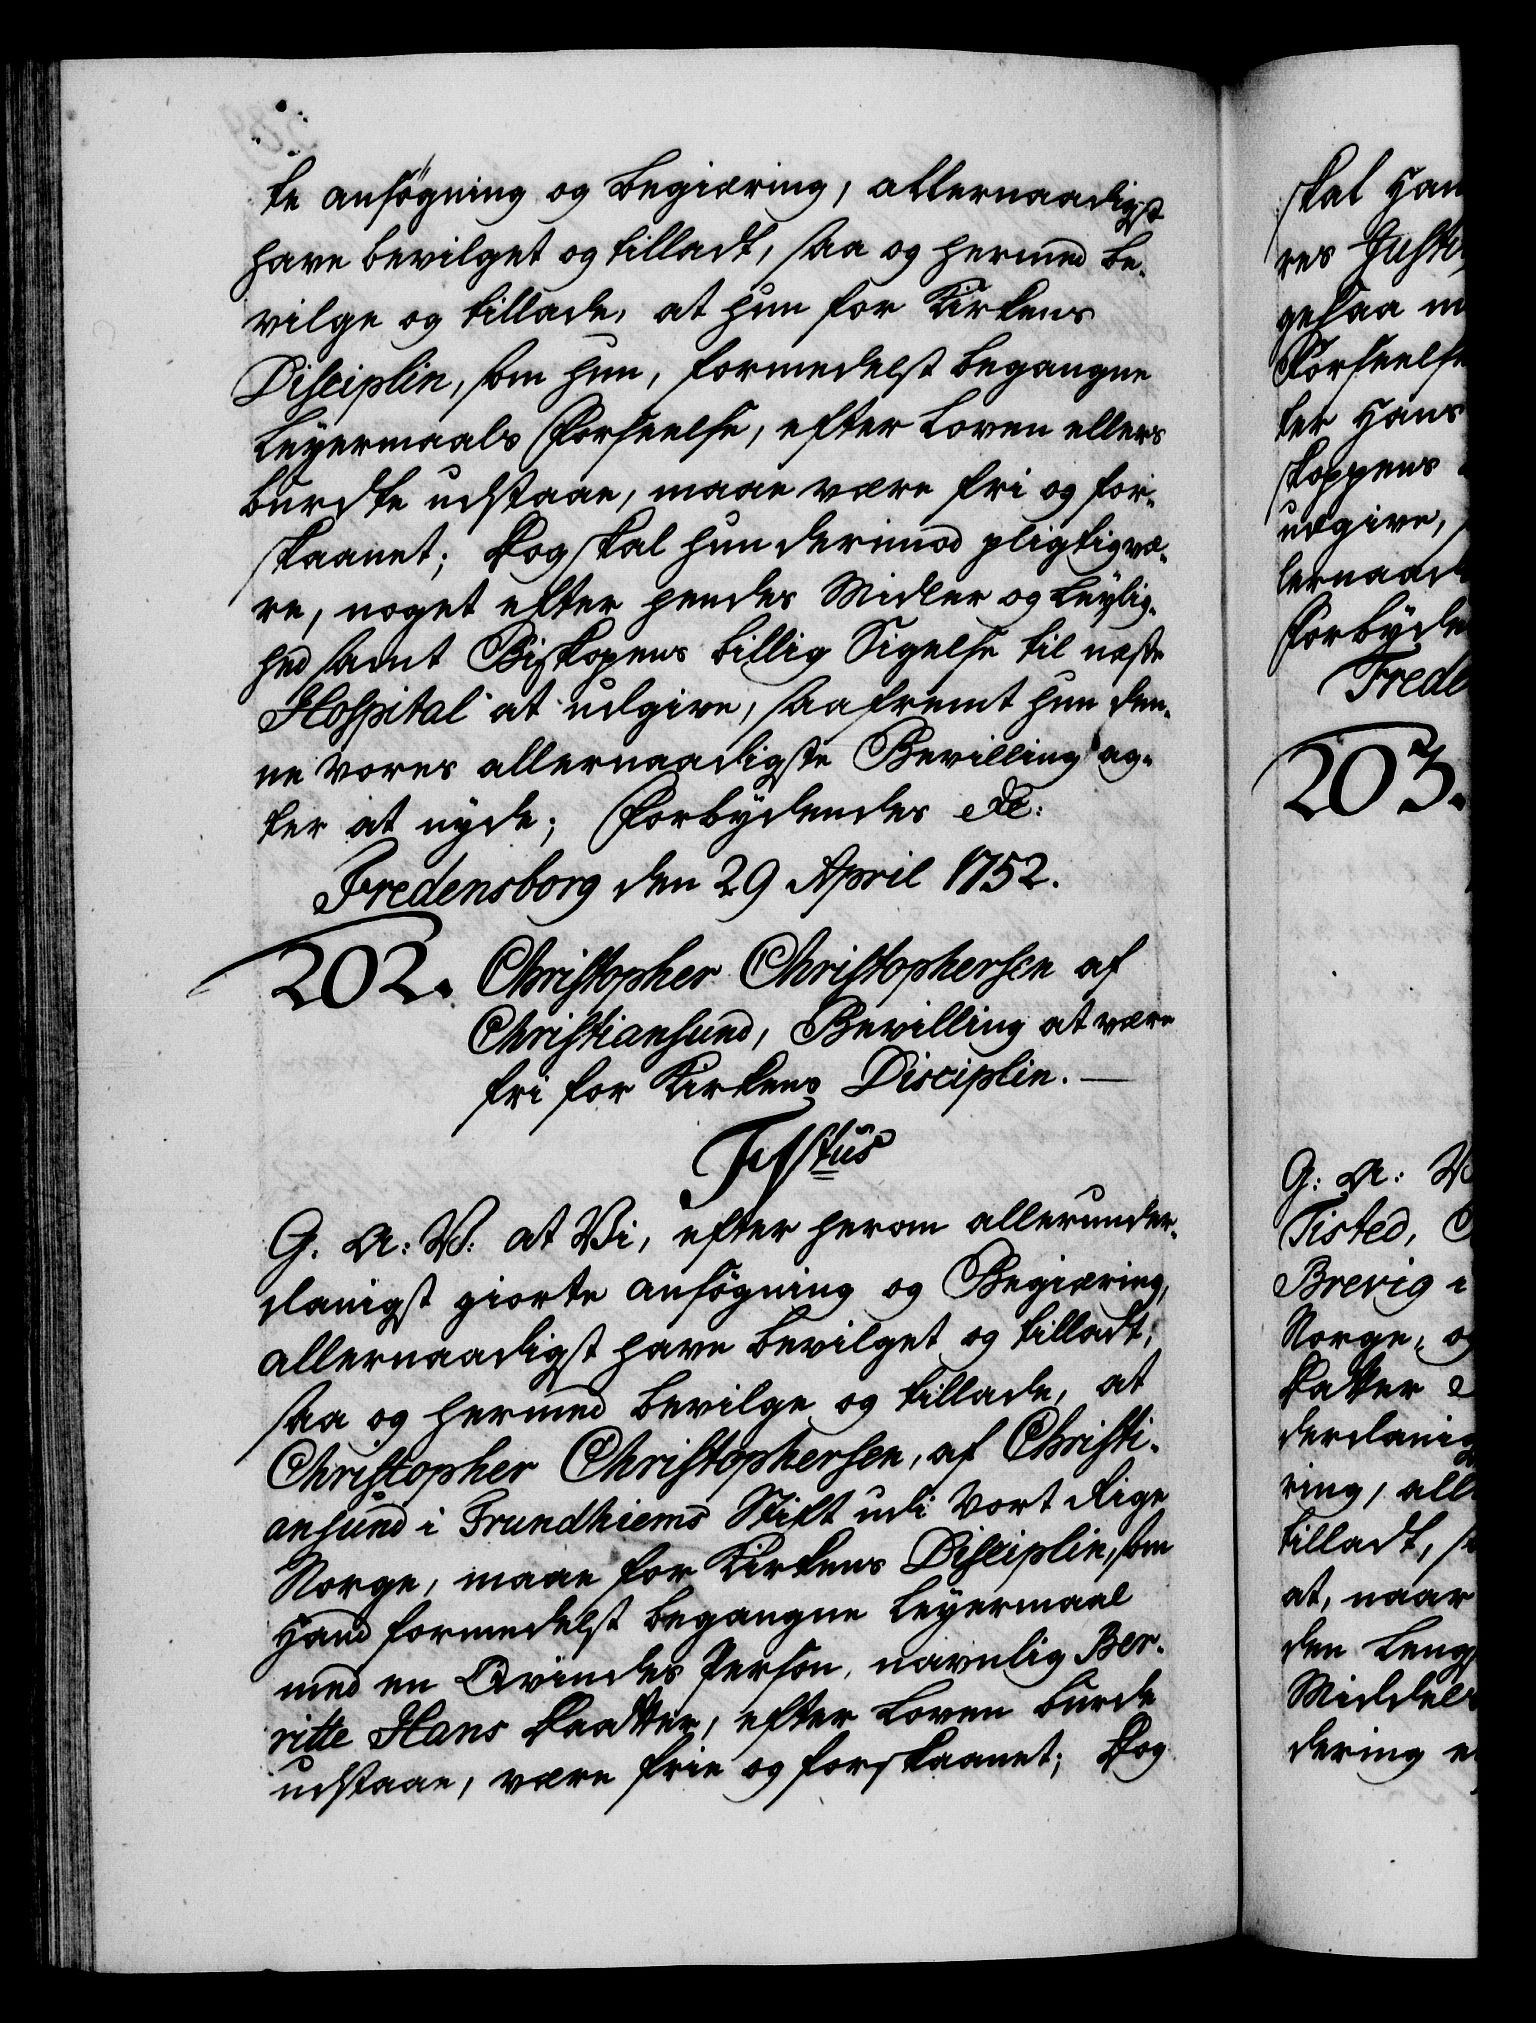 te ansøgning og begiæring, allernaadigst
have bevilget og tilladt, saa og hermed be-
vilge og tillade, at hun for Kirkens
Disciplin, som hun, formedelst begangne
Leyermaals Forseelse, efter Loven ellers
burdte udstaae, maae være fri og for-
skaanet; Dog skal hun derimod pligtig væ-
re, noget efter hendes Midler og Leylig-
hed samt Biskopens billig Sigelse til næste
Hospital at udgive, saafremt hun den-
ne Vores allernaadigste Bevilling ag-
ter at nyde; Forbydendes etc:
Fredensborg den 29 April 1752.
202. Christopher Christophersen af
Christiansund, Bevilling at være
fri for Kirkens Disciplin.
G. A: V: at Vi, efter herom allerunder-
danigst giorte ansøgning og Begiæring,
allernaadigst have bevilget og tilladt,
saa og hermed bevilge og tillade, at
Christopher Christophersen, af Christi-
ansund i Trundhiems Stift udi Vort Rige
Norge, maae for Kirkens Disciplin, som
Hand formedelst begangne Leyermaal
med en Qvindes Person, navnlig Ber-
ritte Hans Daatter, efter Loven burde
udstaae, være frie og forskaanet; Dog
skal Han
res
gesaa
Forseelse
ter Hans
skoppens
udgive,
lernaad
Forbyde
Frede
203.
G: A: V
Tisted,
Brevig i
Norge, og
Datter
derdanig
ring, all
tilladt,
at, naar
den
Middel
dering